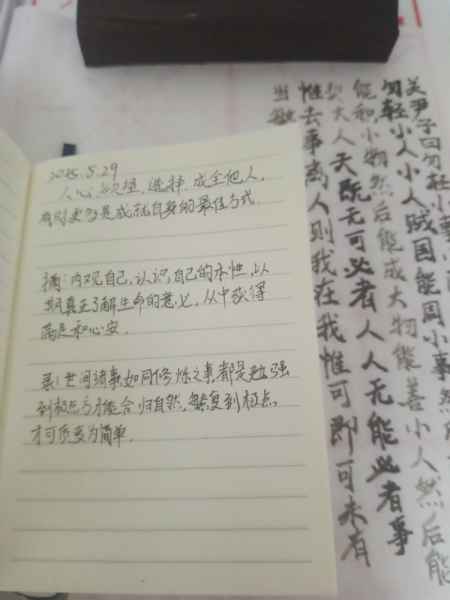 2025.5.29
人心欲望,选择,成全他人,
是成就自身的最佳方式.
摘:内观自己,认识自己的本性,以
期真正了解生命的意义,从中获得
满足和心安.
世间诸事如同修炼之事都是勉强
到极点方才能合归自然,繁复到极点,
才可质变为简单.
关尹子曰勿轻小事
勿轻小人小人贼国能周小事然后
能积小物然后能成大物能善小人然后能
契大人天既无可必者人人无能必者事
惟去事离人则我在我惟可即可未有
当繁